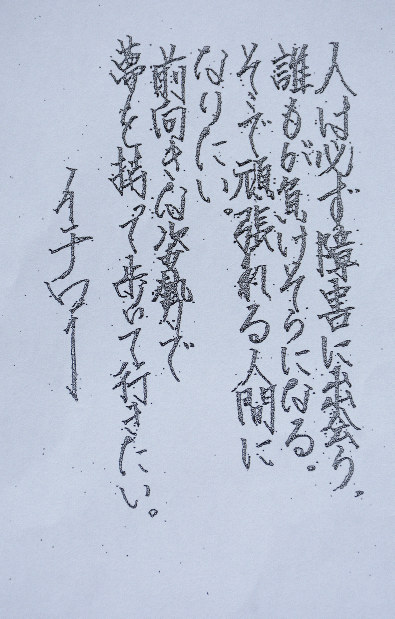 人は必ず障害に出会う、
誰もが負けそうになる。
そこで頑張れる人間に
なりたい。
前向きな姿勢で
夢を持って歩いて行きたい。
イチロー